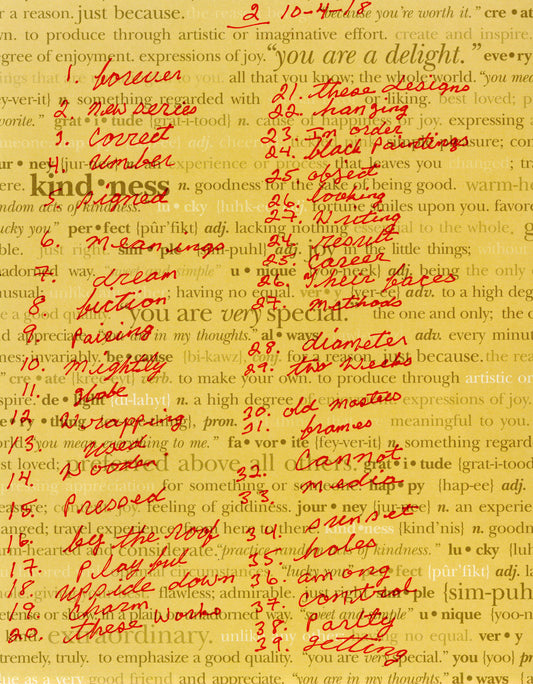 2 10-4-18
1. forever
2. new series
3. correct
4. number
5. signed
6. meanings
7. dream
8. fiction
9. pairing
10. mightly
11. hole
12. wrapping
13. used
14. wooden
15. Pressed
16. by the roof
17. Playful
18. upside down
19. charm
20. these works
21. these designs
22. hanging
23. Im order
24. black Paintings
25. object
26. looking
27. writing
24. result
25. career
26. Their places
27. methods
28. diameter
29. two weeks
30. old masters
31. frames
32. Cannot
33. media
34. sunset
35. holes
36. among
37. control
38. Parity
39. getting
a reason. just because. because you're worth it." cre • at
wn. to produce through artistic or imaginative effort. create and inspire.
gree of enjoyment. expressions of joy. "you are a delight." eve•ry
to you. all that you know; the whole world. "you mea
ey-ver-it} n. something regarded with or liking. best loved; p
vorite." grat • i • tude {grat-i-tood} n.
ur • ney experience or process that leaves you changed; tra
ere. kind•ness n. goodness for the sake of being good. warm-he
ndom acts of kindness. lu • cky {luhk-ee} adj. fortune smiles upon you. favore
ucky you" per • fect {pûr'fikt} adj. lacking nothing essential to the whole.
ble. just right. sim • ple {sim-puhl} adj. joy in the little things; without
adorned way. simple" u • nique {yoo-neek} adj. being the only
nusual; having no equal. ver • y {ver-ee} adv. to a high deg
e a good quality. "you are very special." the one and only; the o
d appreciate. in my thoughts." al • ways adv. every minut
mes; invariably. be • cause {bi-kawz} conj. for a reason. just because. the rea
" cre • ate verb. to make your own. to produce through artistic or
spire. de • light {di-lahyt} n. a high degree of enjoyment. expressions of joy.
e • ry • thing pron. meaningful to you.
orld. "you mean everything to me." fa • vor • ite {fey-ver-it} n. something regard
st loved; preferred above all others. grat • i • tude {grat-i-tood}
for something or someone. hap • py {hap-ee} adj.
easure; com feeling of gidliness. jour • ney n. an experien
anged; travel experience from here to there. kind•ness {kind'nis} n. goodn
arm-hearted and considerate. "practice random acts of kindness." lu • cky {luh
"lucky you" per • fect {pûr'fikt} adj. la
flawless; admirable. just right. sim•ple {sim-puh
plain, unadorned way. "sweet and simple" u • nique {yoo-n
extraordinary. unlike any other; having no equal. ver • y
tremely, truly. to emphasize a good quality. "you are very special." you {yoo} pr
ue as a very good friend and appreciate. "you are in my thoughts." al • ways {